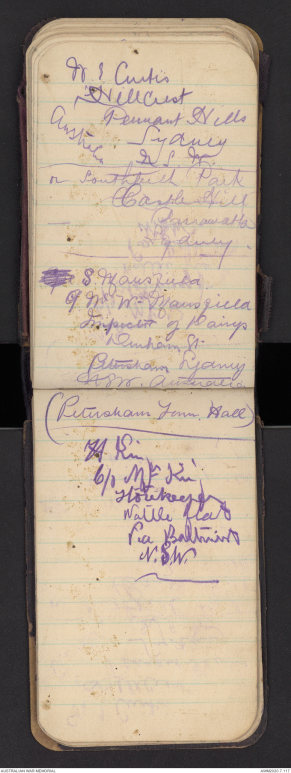 W E Curtis
"Hillcrest
Pennant Hills
Australia Sydney
N S W.
or Southfield Park
Castle Hill
Parramatta
Sydney
S Mansfield
c/o Mr W. Mansfield
Inspector of Dairys
Denham St
Petersham Sydney
N.S.W. Australia
(Petersham Town Hall)
H King
C/o Mr F King
Storekeeper
Wattle Flat
Via Bathurst
N.S.W.
AUSTRALIAN WAR MEMORIAL